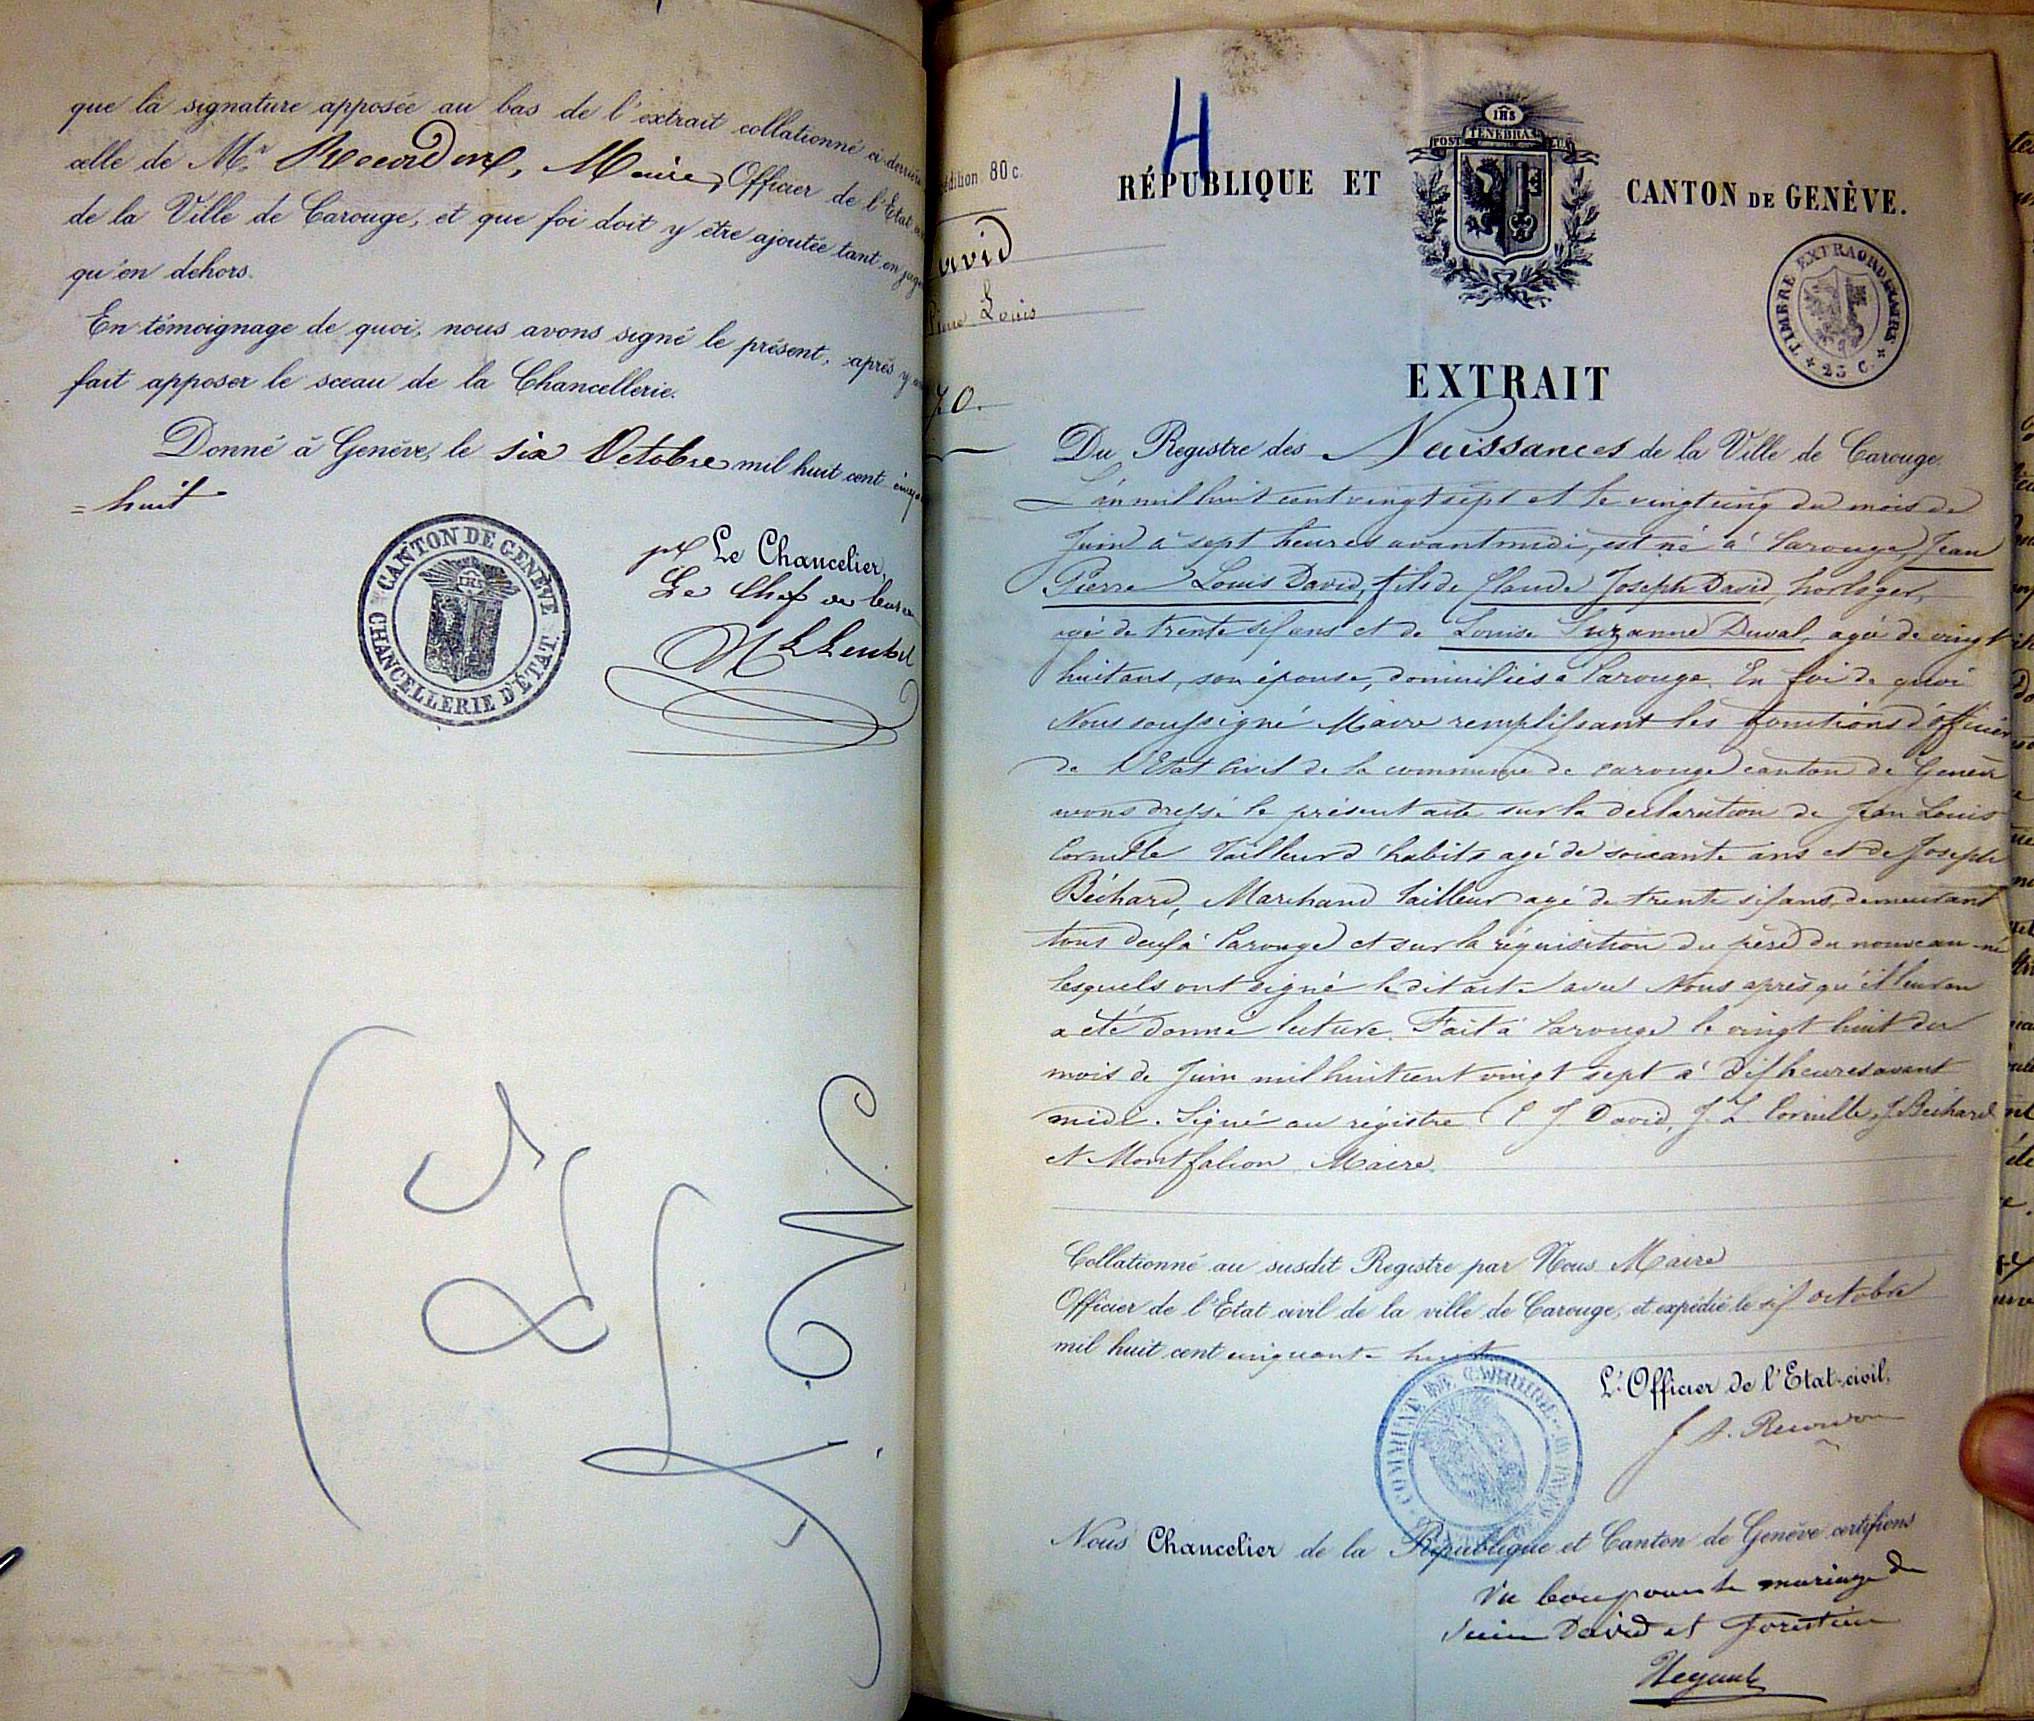 que la signature apposée au bas de l'extrait collationné ci-derrière
celle de Mr. Recordon, Maire, Officier de l'Etat
de la Ville de Carouge, et que foi doit y être ajoutée tant en
qu'en dehors.
En témoignage de quoi, nous avons signé le présent, après y
fait apposer le sceau de la Chancellerie.
Donné à Genève, le six Octobre mil huit cent
= huit
CANTON DE GENÈVE
CHANCELLERIE D'ÉTAT.
IHS
Le Chancelier,
Le Chef de bureau
4
édition. 80 c.
David
Pierre Louis
70.
RÉPUBLIQUE ET CANTON DE GENÈVE.
IHS
POST TENEBRAS LUX
TIMBRE EXTRAORDINAIRE
25 C.
EXTRAIT
Du Registre des Naissances de la Ville de Carouge.
L'an mil huit cent vingt sept et le vingt cinq du mois de
Juin à sept heures avant midi, est né à Carouge, Jean
Pierre Louis David, fils de Claude Joseph David, horloger,
agé de trente six ans et de Louise Suzanne Duval, agée de vingt
huit ans, son épouse, domiciliés à Carouge. En foi de quoi
Nous soussigné Maire remplissant les fonctions d'officier
de l'Etat Civil de la commune de Carouge canton de Genève
avons dressé le présent acte sur la déclaration de Jean Louis
Cornille Tailleur d'habits agé de soixante ans et de Joseph
Béchard, Marchand Tailleur agé de trente six ans, demeurant
tous deux à Carouge et sur la réquisition du père du nouveau-né
lesquels ont signé le dit acte avec Nous après qu'il leur en
a été donné lecture. Fait à Carouge le vingt huit du
mois de Juin mil huit cent vingt sept à dix heures avant
midi. Signé au régistre C J. David, J. L. Cornille, J. Béchard
et Montfalcon Maire.
Collationné au susdit Registre par Nous Maire
Officier de l'Etat civil de la ville de Carouge, et expédié le six octobre
mil huit cent cinquante huit
L'Officier de l'Etat-civil,
J. A. Recordon
COMMUNE DE CAROUGE
Nous Chancelier de la République et Canton de Genève certifions
Vu bon pour le mariage de
David et Forestier